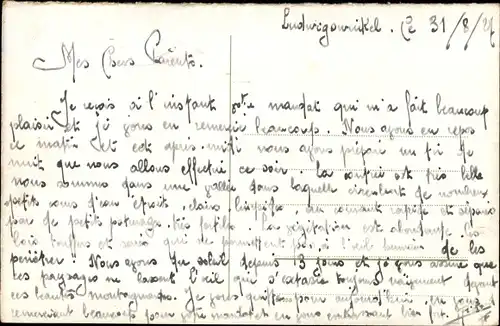 Ludwigswinkel. Le 31/8/27
Mes Chers Parents.
Je reçois à l'instant votre mandat qui m'a fait beaucoup
plaisir et je vous en remercie beaucoup. Nous avons eu repos
ce matin et cet après-midi nous avons préparé un tir de
nuit que nous allons effectuer ce soir. La contrée est très belle
nous sommes dans une vallée dans laquelle circulent de nombreux
petits cours d'eau étroit, claire limpide, au courant rapide et
par de petit paturage très fertile. La végétation est abondante. Les
bois touffus et sans qui ne permettent pas, à l'œil humain de les
pénétrer. Nous avons du soleil depuis 3 jours et je vous assure que
ces paysages ne lassent l'œil qui s'extasie toujours naïvement devant
ces hautes montagnes. Je vous quitte pour aujourd'hui en vous
remerciant beaucoup pour votre mandat et en vous embrassant bien fort.